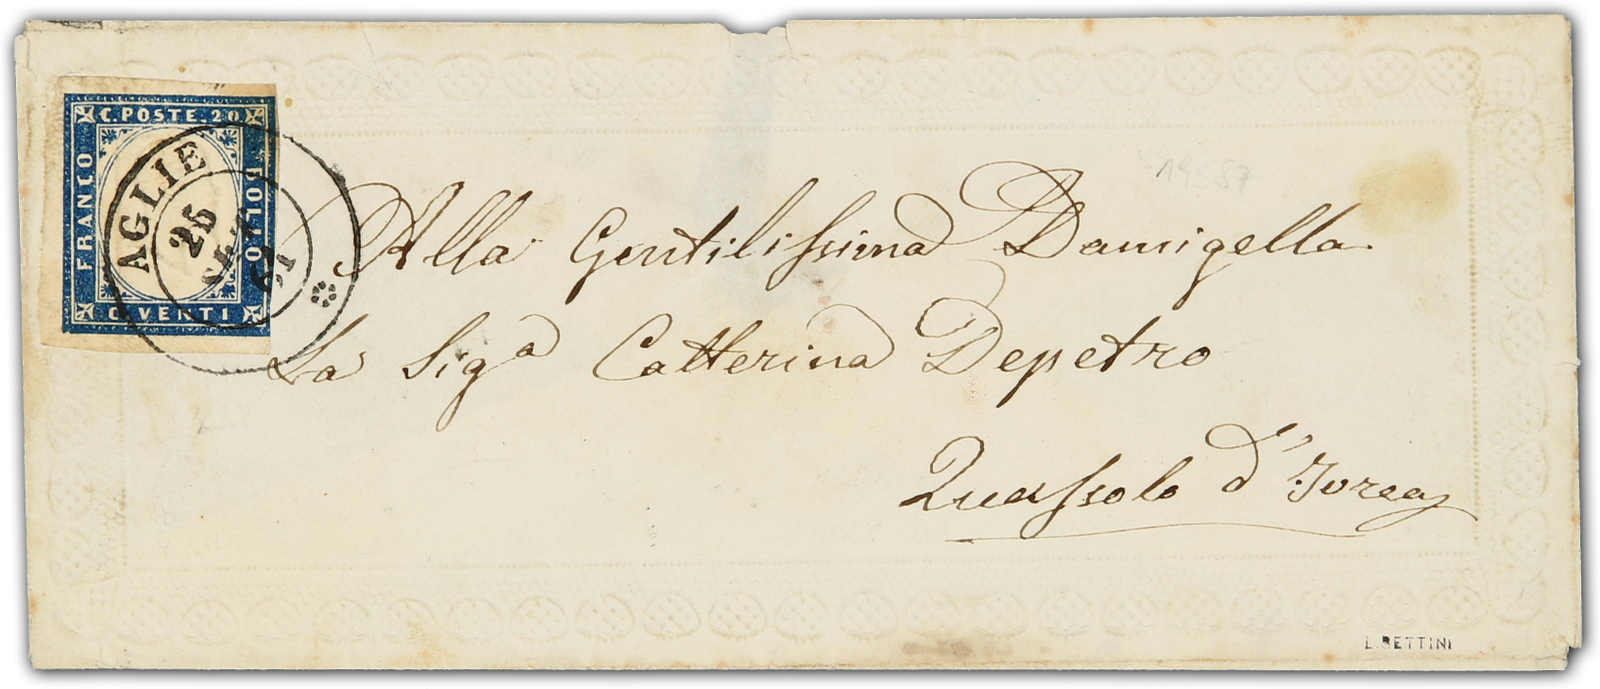 C. POSTE. 20
FRANCO
BOLLO
C. VENTI
AGLIE
25
SET
61
Alla Gentilissima Damigella
La Sig.a Catterina Depetro
Quassolo d'Ivrea
L. BETTINI